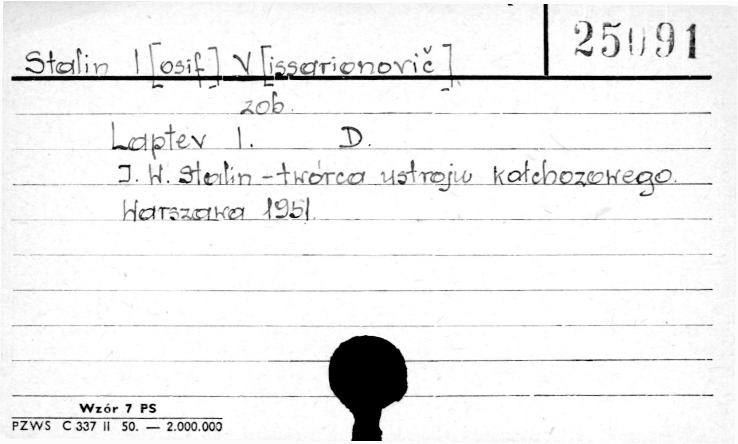 25091
Stalin I[osif] V[issarionovič]
zob.
Laptev I. D.
J. W. Stalin - twórca ustroju kołchozowego.
Warszawa 1951.
Wzór 7 PS
PZWS C 337 II 50. — 2.000.000